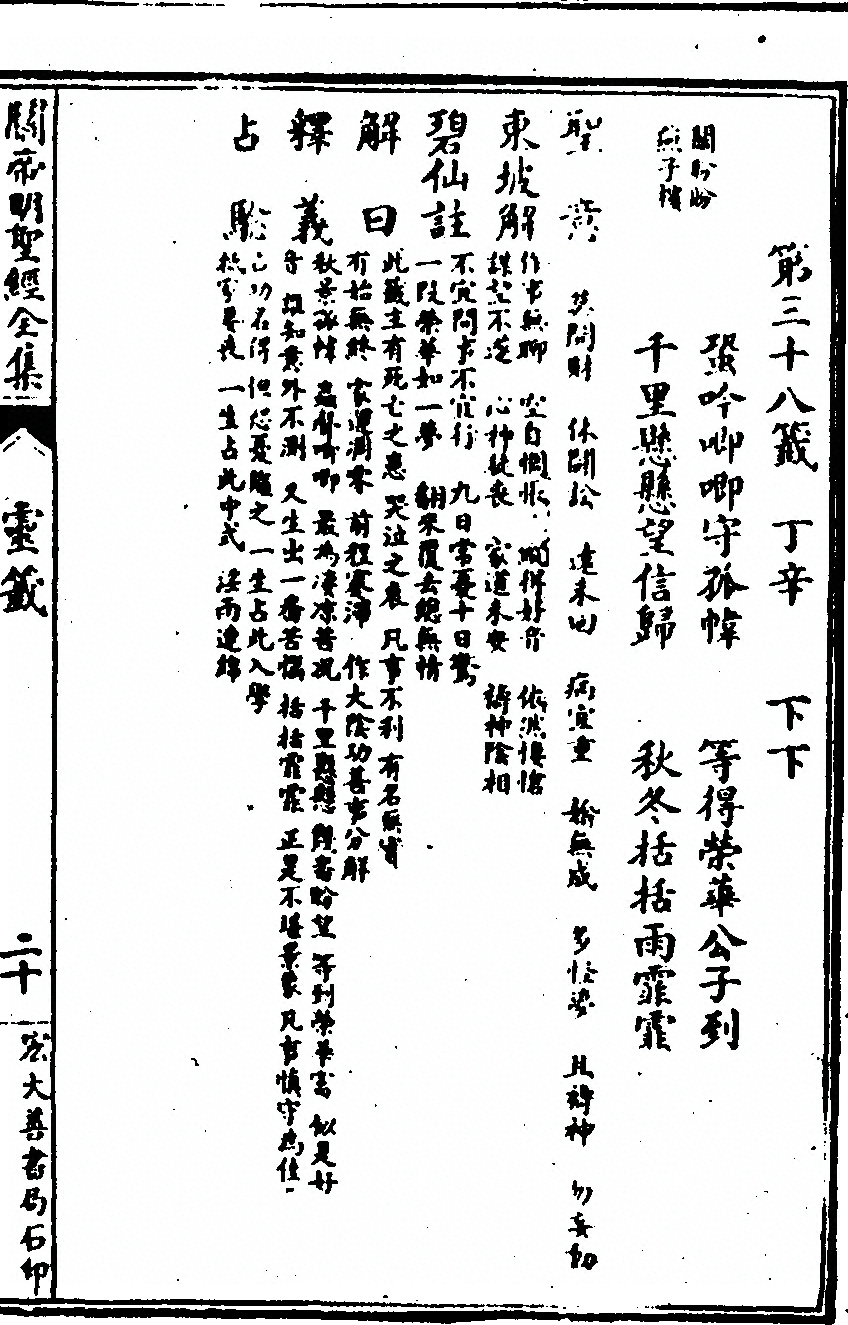 第三十八籤 丁辛 下下
關盼盼
燕子樓
蛩吟唧唧守孤幃 等得榮華公子到
千里懸懸望信歸 秋冬括括雨霏霏
聖意 莫問財 休鬬訟 遠未回 病宜重 婚無成 多怪夢 且禱神 勿妄動
東坡解
作事無聊 空自惆悵 嘅得好音 依然悽愴
謀望不遂 心神徒喪 家道未安 禱神陰相
碧仙註
不宜問事不宜行 九日常憂十日驚
一段榮華如一夢 翻來覆去總無情
解曰
此籤主有死亡之患 哭泣之哀 凡事不利 有名無實
有始無終 家運凋零 前程蹇滯 作大陰功善事分解
釋義
秋景孤幃 蟲聲唧唧 最為凄凉苦况 千里懸懸 問書盼望 等到榮華客 似是好
音 誰知意外不測 又生出一番苦惱 括括霏霏 正是不堪景象 凡事慎守為佳
占驗
占功名得 但恐憂臨之 一生占此入學
旋密居喪 一生占此中式 淫雨連綿
關帝明聖經全集 靈籤 二十 宏大善書局石印